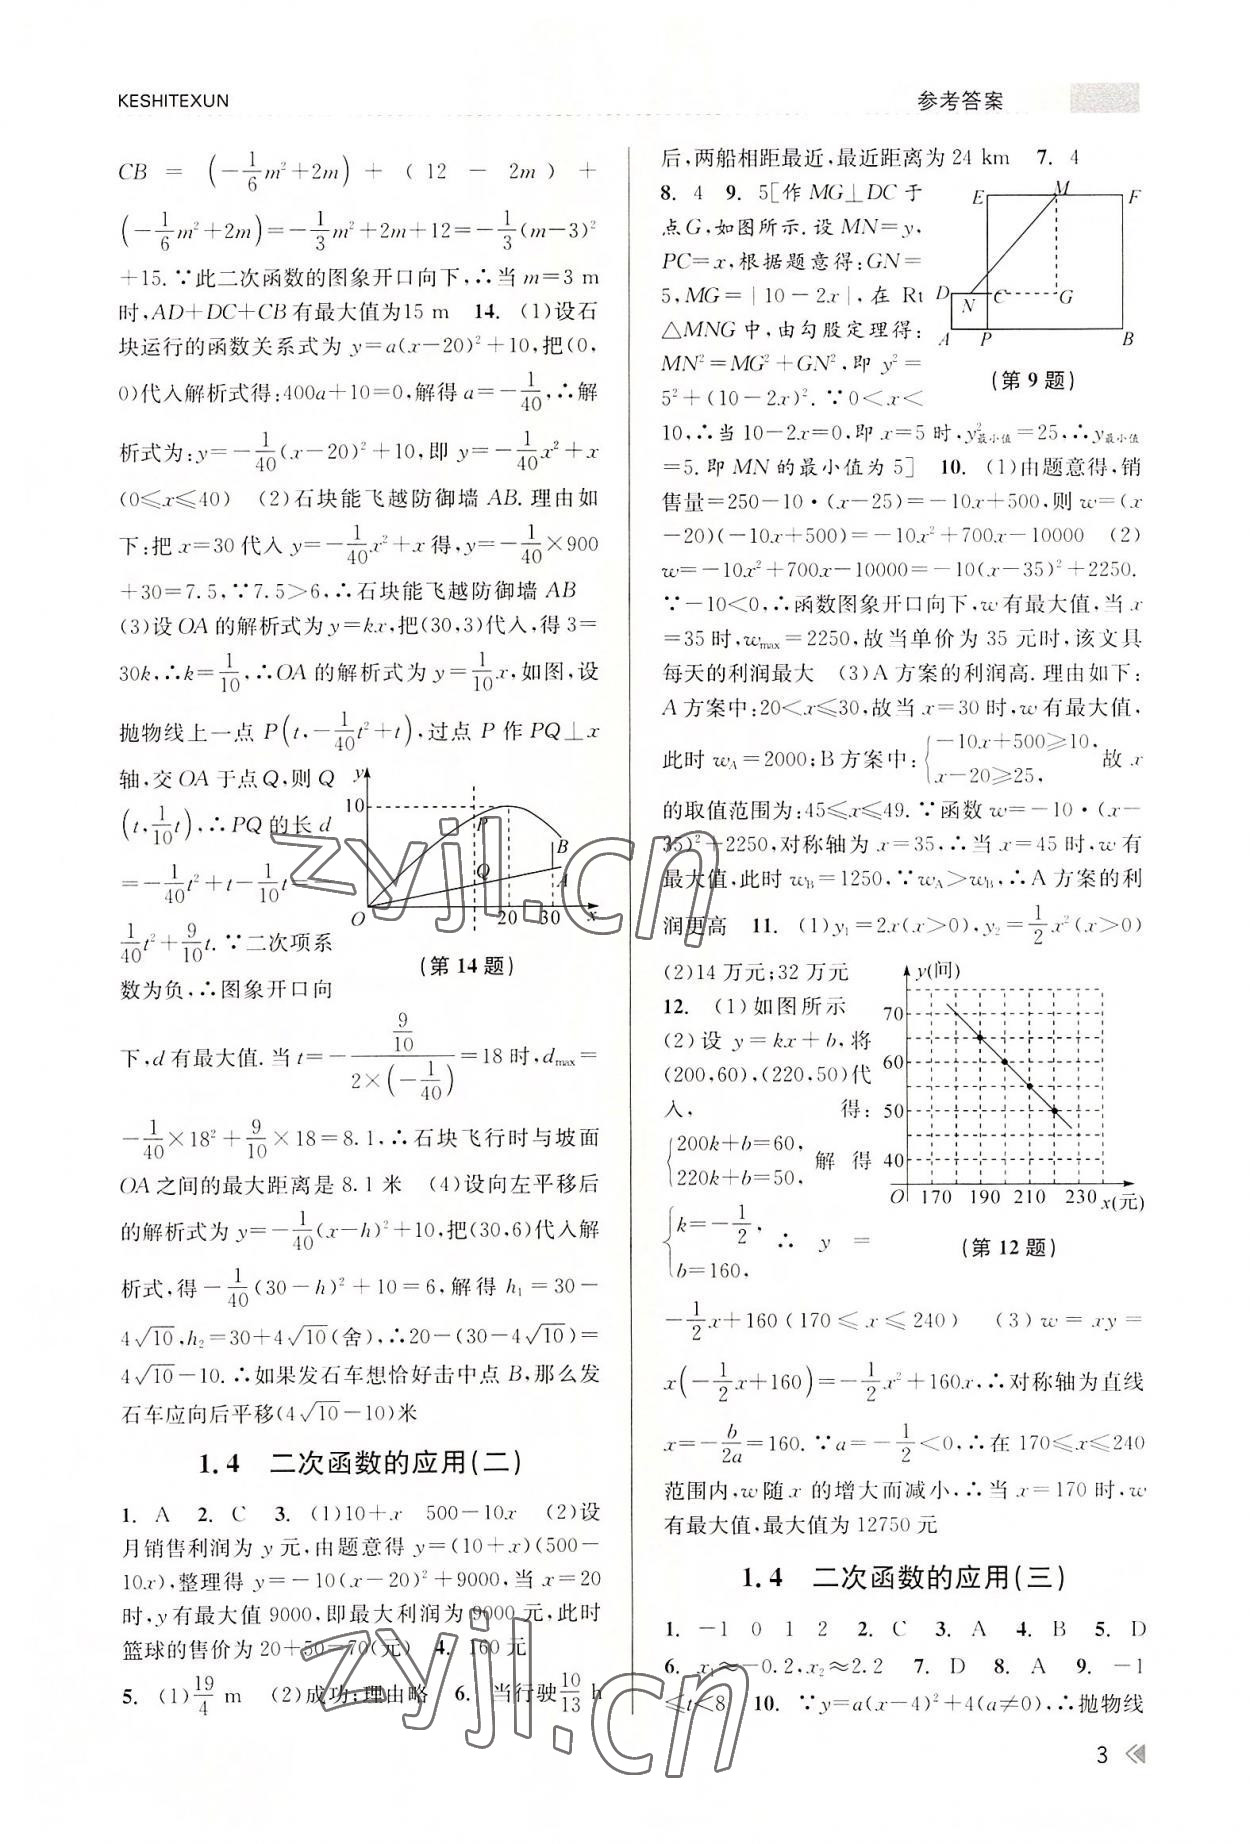 KESHITEXUN
参考答案
CB = (-1/6m²+2m) + (12-2m) +
(-1/6m²+2m)=-1/3m²+2m+12=-1/3(m-3)²
+15.∵此二次函数的图象开口向下,∴当m=3 m
时,AD+DC+CB有最大值为15 m 14. (1)设石
块运行的函数关系式为y=a(x-20)²+10,把(0,
0)代入解析式得:400a+10=0,解得a=-1/40,∴解
析式为:y=-1/40(x-20)²+10,即y=-1/40x²+x
(0≤x≤40) (2)石块能飞越防御墙AB.理由如
下:把x=30代入y=-1/40x²+x得,y=-1/40×900
+30=7.5,∵7.5>6,∴石块能飞越防御墙AB
(3)设OA的解析式为y=kx,把(30,3)代入,得3=
30k,∴k=1/10,∴OA的解析式为y=1/10x,如图,设
抛物线上一点P(t,-1/40t²+t),过点P作PQ⊥x
轴,交OA于点Q,则Q
(t,1/10t),∴PQ的长d
=-1/40t²+t-1/10t=-
1/40t²+9/10t.∵二次项系
数为负,∴图象开口向
y
10
P
B
Q
A
O
20
30
x
(第14题)
下,d有最大值.当t=-(9/10)/(2×(-1/40))=18时,dmax=
-1/40×18²+9/10×18=8.1,∴石块飞行时与坡面
OA之间的最大距离是8.1米 (4)设向左平移后
的解析式为y=-1/40(x-h)²+10,把(30,6)代入解
析式,得-1/40(30-h)²+10=6,解得h₁=30-
4√10,h₂=30+4√10(舍),∴20-(30-4√10)=
4√10-10.∴如果发石车想恰好击中点B,那么发
石车应向后平移(4√10-10)米
1.4 二次函数的应用(二)
1. A 2. C 3. (1)10+x 500-10x (2)设
月销售利润为y元,由题意得y=(10+x)(500-
10x),整理得y=-10(x-20)²+9000,当x=20
时,y有最大值9000,即最大利润为9000元,此时
篮球的售价为20+50=70(元) 4. 160元
5. (1)19/4 m (2)成功;理由略 6. 当行驶10/13 h
后,两船相距最近,最近距离为24 km 7. 4
8. 4 9. 5[作MG⊥DC于
点G,如图所示.设MN=y,
PC=x,根据题意得:GN=
5,MG=|10-2x|,在Rt
△MNG中,由勾股定理得:
MN²=MG²+GN²,即y²=
5²+(10-2x)².∵0<x<
E
M
F
D
N
C
G
A
P
B
(第9题)
10,∴当10-2x=0,即x=5时,y²最小值=25,∴y最小值
=5.即MN的最小值为5] 10. (1)由题意得,销
售量=250-10·(x-25)=-10x+500,则w=(x
-20)(-10x+500)=-10x²+700x-10000 (2)
w=-10x²+700x-10000=-10(x-35)²+2250.
∵-10<0,∴函数图象开口向下,w有最大值,当x
=35时,wmax=2250,故当单价为35元时,该文具
每天的利润最大 (3)A方案的利润高.理由如下:
A方案中:20<x≤30,故当x=30时,w有最大值,
此时wA=2000;B方案中:{-10x+500≥10, x-20≥25, 故x
的取值范围为:45≤x≤49.∵函数w=-10·(x-
35)²+2250,对称轴为x=35,∴当x=45时,w有
最大值,此时wB=1250,∵wA>wB,∴A方案的利
润更高 11. (1)y₁=2x(x>0),y₂=1/2x²(x>0)
(2)14万元;32万元
12. (1)如图所示
(2)设y=kx+b,将
(200,60),(220,50)代
入, 得:
{200k+b=60, 220k+b=50, 解得
{k=-1/2, b=160, ∴ y =
y(间)
70
60
50
40
O
170 190 210 230 x(元)
(第12题)
-1/2x+160(170≤x≤240) (3)w=xy=
x(-1/2x+160)=-1/2x²+160x,∴对称轴为直线
x=-b/2a=160.∵a=-1/2<0,∴在170≤x≤240
范围内,w随x的增大而减小,∴当x=170时,w
有最大值,最大值为12750元
1.4 二次函数的应用(三)
1. -1 0 1 2 2. C 3. A 4. B 5. D
6. x₁≈-0.2,x₂≈2.2 7. D 8. A 9. -1
≤t<8 10. ∵y=a(x-4)²+4(a≠0),∴抛物线
3
zyjl.cn
zyjl.cn